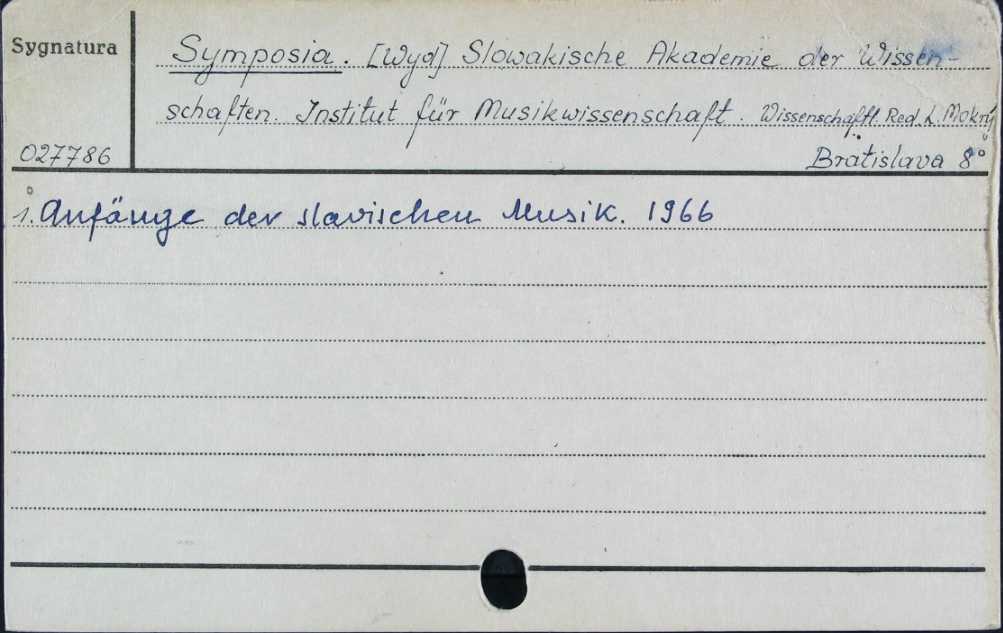 Sygnatura
Symposia. [Wyd] Slowakische Akademie der Wissen-
schaften. Institut für Musikwissenschaft. Wissenschaftl. Red. L. Mokrý
027786
Bratislava 8°
1. Anfänge der slavischen Musik. 1966